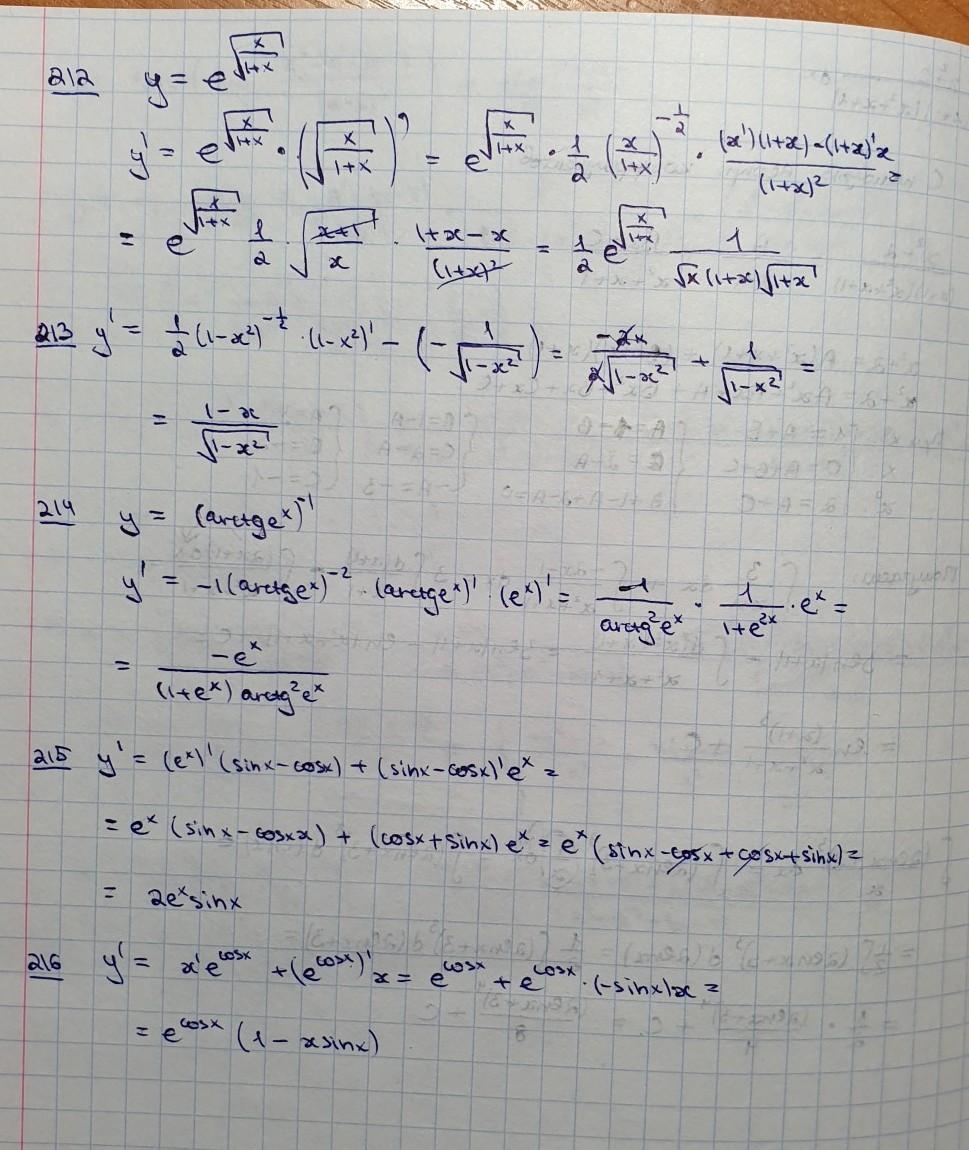 212 y = e^{\sqrt{\frac{x}{1+x}}}
y' = e^{\sqrt{\frac{x}{1+x}}} · (\sqrt{\frac{x}{1+x}})' = e^{\sqrt{\frac{x}{1+x}}} · \frac{1}{2} (\frac{x}{1+x})^{-\frac{1}{2}} · \frac{(x')(1+x) - (1+x)'x}{(1+x)^2} =
= e^{\sqrt{\frac{x}{1+x}}} \frac{1}{2} · \sqrt{\frac{x+1}{x}} · \frac{1+x-x}{(1+x)^2} = \frac{1}{2} e^{\sqrt{\frac{x}{1+x}}} \frac{1}{\sqrt{x}(1+x)\sqrt{1+x}}
213 y' = \frac{1}{2}(1-x^2)^{-\frac{1}{2}} · (1-x^2)' - (-\frac{1}{\sqrt{1-x^2}}) = \frac{-2x}{2\sqrt{1-x^2}} + \frac{1}{\sqrt{1-x^2}} =
= \frac{1-x}{\sqrt{1-x^2}}
214 y = (arctg e^x)^{-1}
y' = -1(arctg e^x)^{-2} · (arctg e^x)' · (e^x)' = \frac{-1}{arctg^2 e^x} · \frac{1}{1+e^{2x}} · e^x =
= \frac{-e^x}{(1+e^x) arctg^2 e^x}
215 y' = (e^x)'(sinx-cosx) + (sinx-cosx)'e^x =
= e^x (sinx-cosxx) + (cosx+sinx) e^x = e^x (sinx-cosx+cosx+sinx) =
= 2e^x sinx
216 y' = x'e^{cosx} + (e^{cosx})'x = e^{cosx} + e^{cosx} · (-sinx)x =
= e^{cosx} (1 - xsinx)